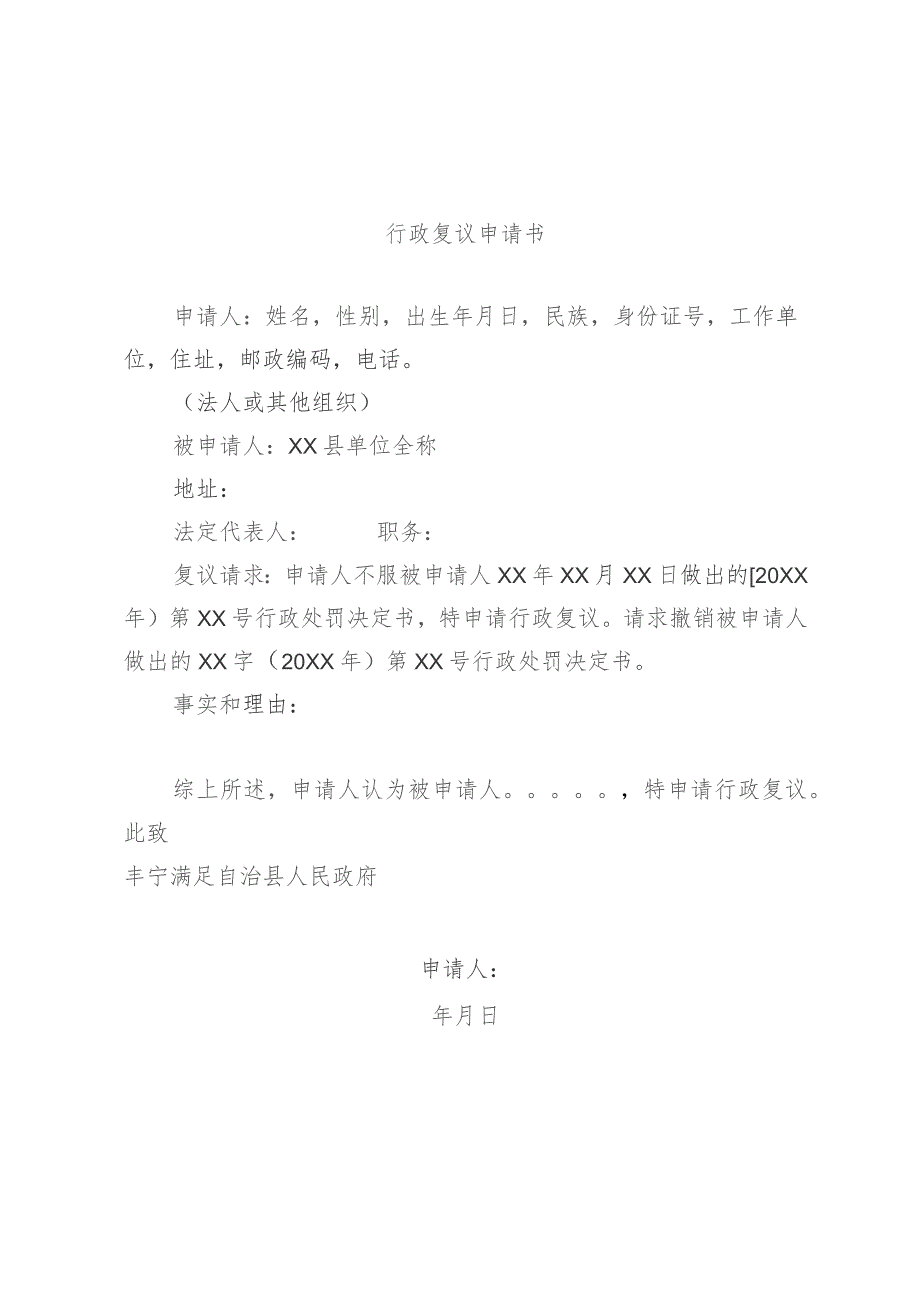 行政复议申请书
申请人：姓名，性别，出生年月日，民族，身份证号，工作单
位，住址，邮政编码，电话。
（法人或其他组织）
被申请人：XX县单位全称
地址：
法定代表人： 职务：
复议请求：申请人不服被申请人XX年XX月XX日做出的[20XX
年）第XX号行政处罚决定书，特申请行政复议。请求撤销被申请人
做出的XX字（20XX年）第XX号行政处罚决定书。
事实和理由：
综上所述，申请人认为被申请人。。。。。，特申请行政复议。
此致
丰宁满足自治县人民政府
申请人：
年月日